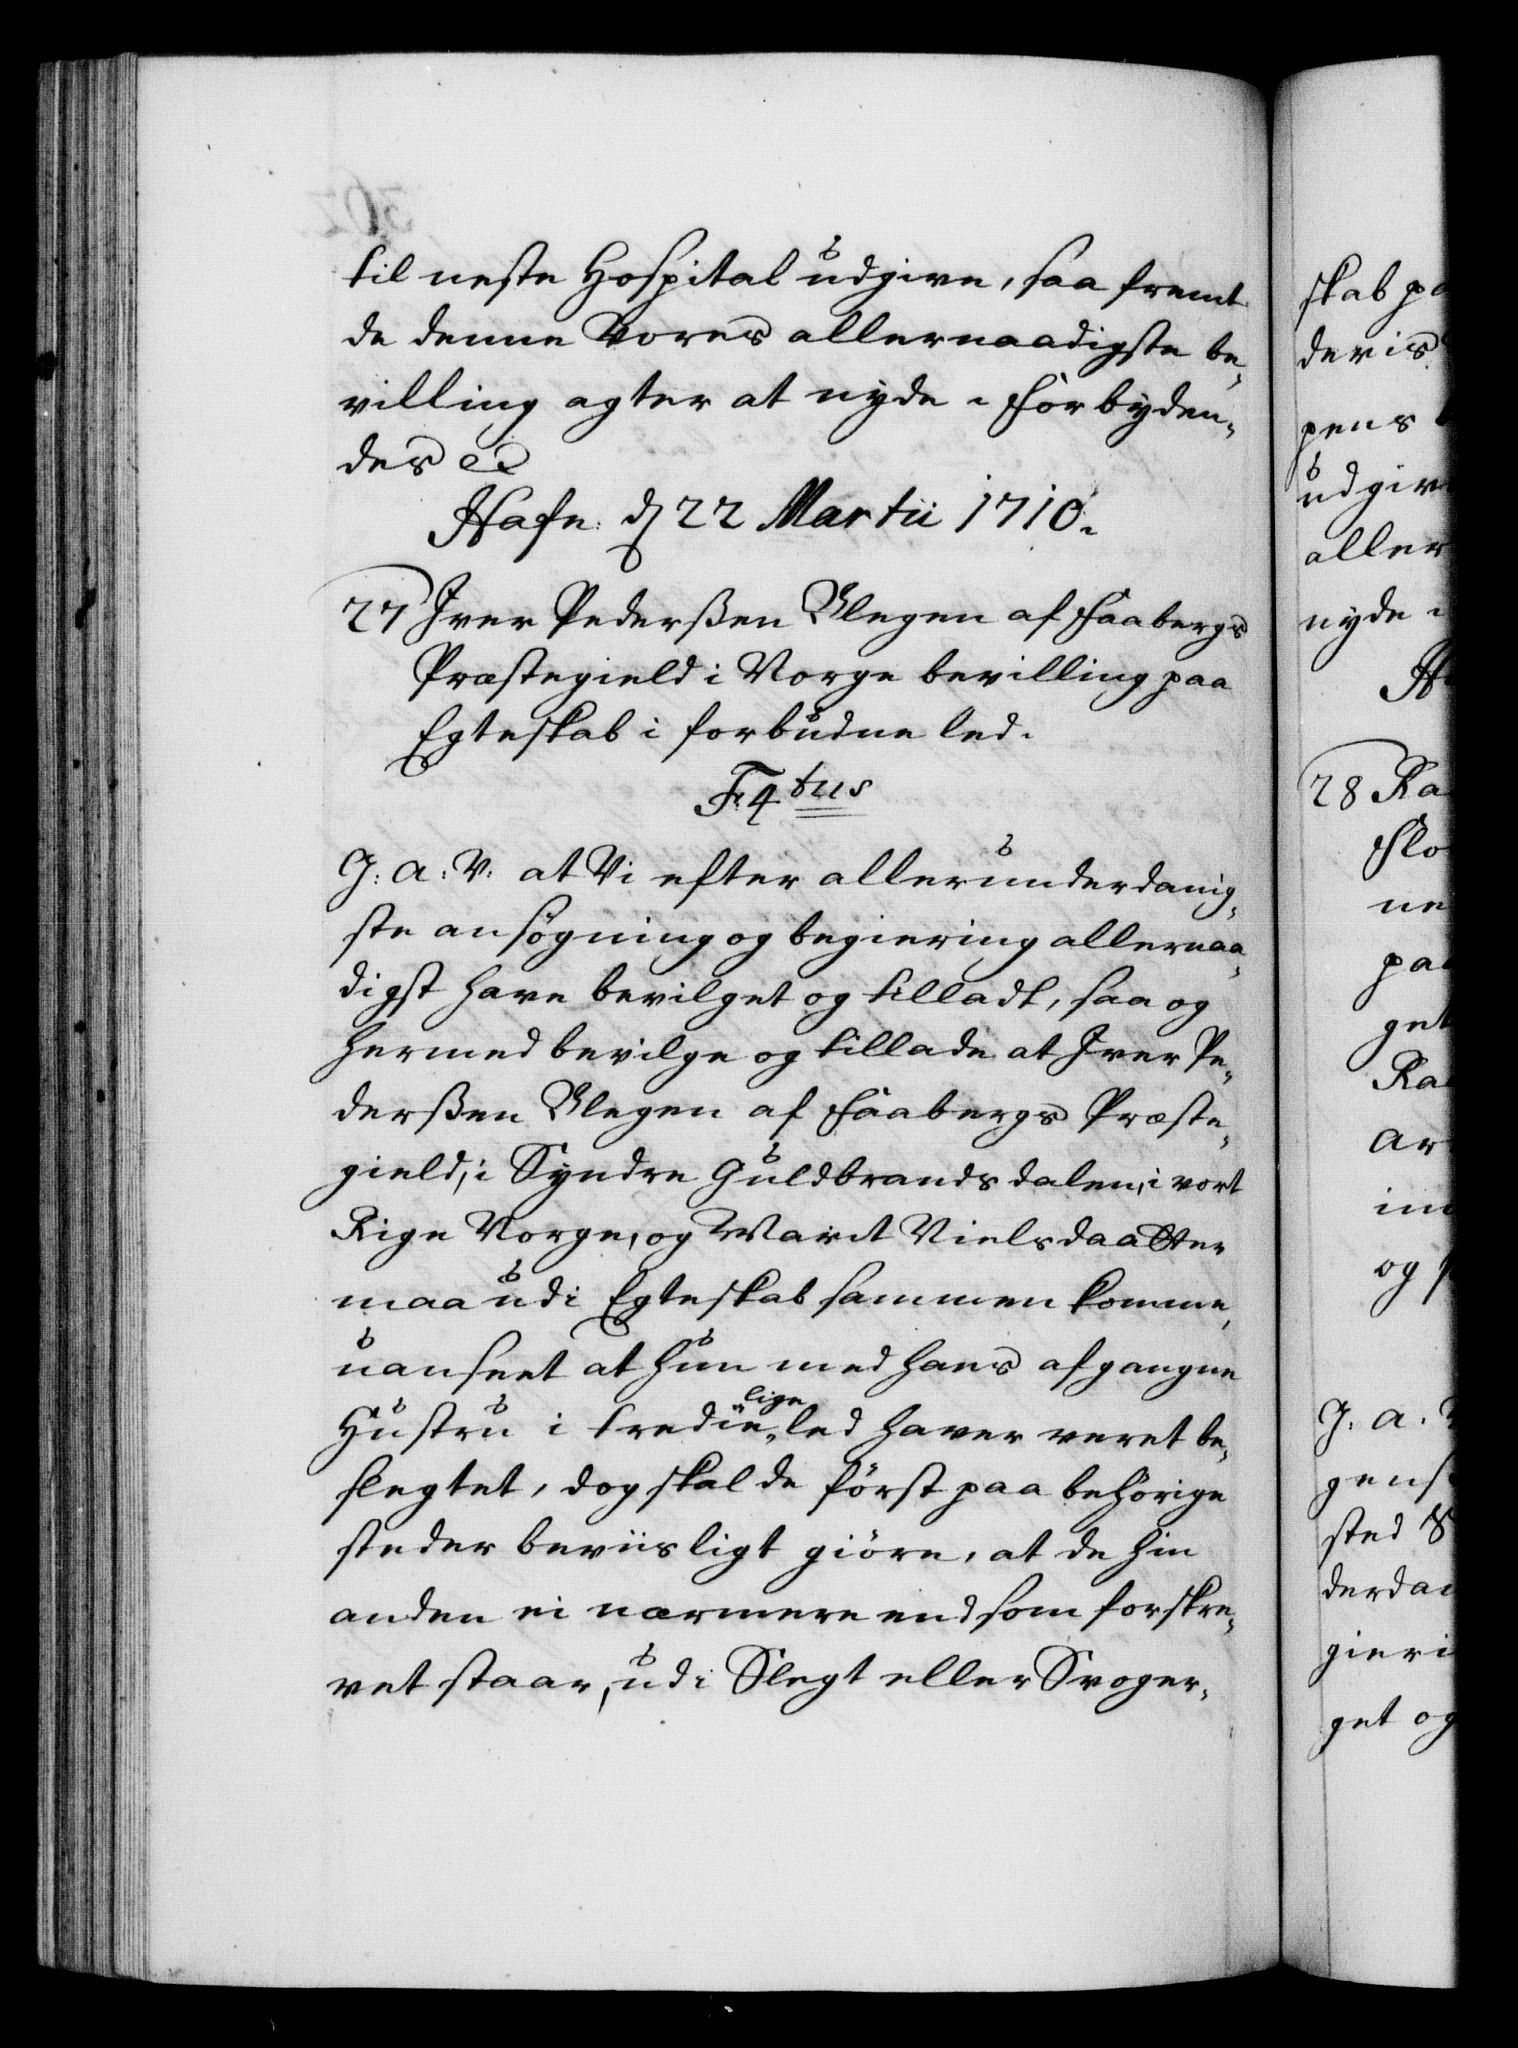 til neste Hospital udgive, saa fremt
de denne Vores allernaadigste be,
villing agter at nyde. Forbyden,
des etc
Hafn: d 22 Martii 1710.
27 Iver Pederßen Ulegen af Faabergs
Præstegield i Norge bevilling paa
Egteskab i forbudne led.
F: 4tus
G: A: V: at Vi efter allerunderdanig,
ste ansøgning og begiering allernaa,
digst have bevilget og tilladt, saa og
hermed bevilge og tillade at Iver Pe,
derßen Ulegen af Faabergs Præste,
gield, i Syndre Guldbrandsdalen, i vort
Rige Norge, og Marit Nielsdaatter
maa udi Egteskab sammen komme,
uanseet at hun med hans afgangne
Hustru i tredie lige led haver veret be,
slegtet, dog skal de først paa behörige
steder beviisligt giöre, at de hin
anden ei nærmere end som forskre,
vet staar, udi Slegt eller Svoger,
skab pa
deris
pens
udgiv
aller
nyde.
28 Ra
Flo
ne
paa
get
Ra
ar
in
og
G: A:
gens
sted
derdan
gieri
get og